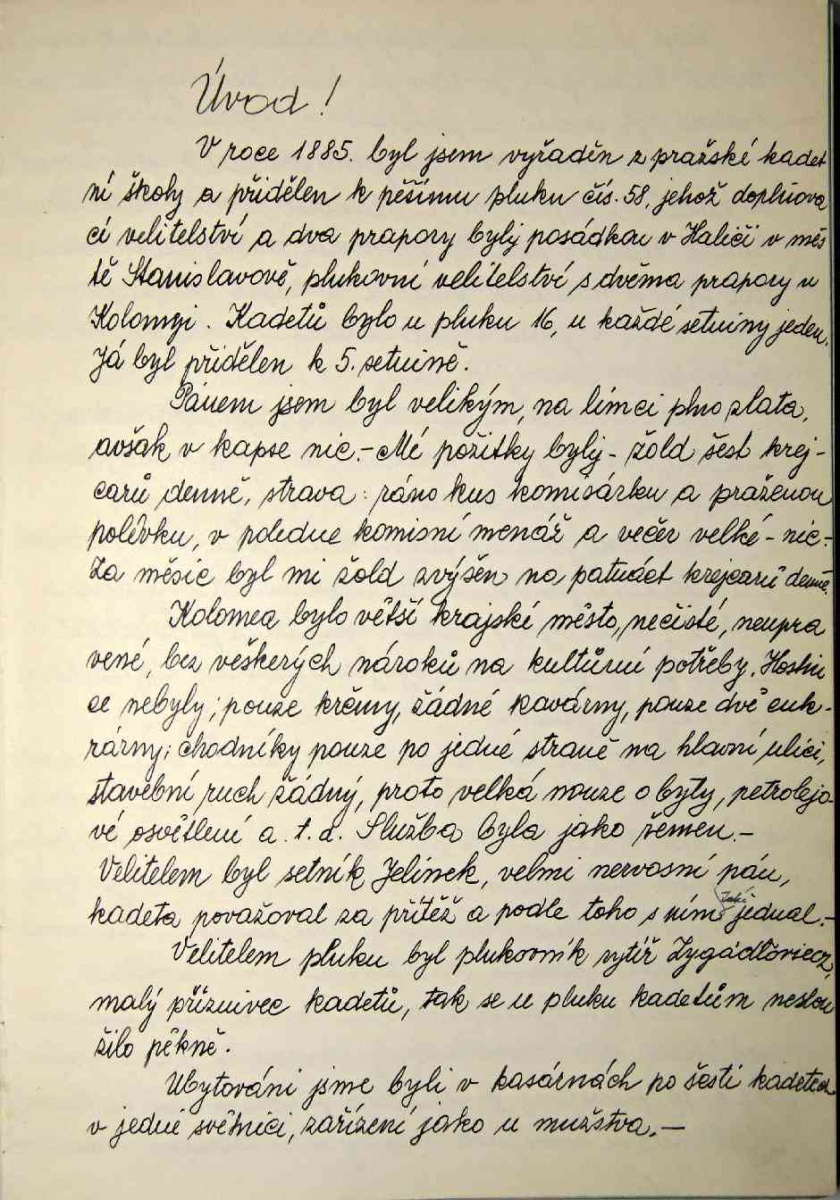 Úvod!
V roce 1885. byl jsem vyřaděn z pražské kadet
ní školy a přidělen k pěšímu pluku čís. 58, jehož doplňova
cí velitelství a dva prapory byly posádkou v Haliči v měs
tě Stanislavově, plukovní velitelství s dvěma prapory v
Kolomyi. Kadetů bylo u pluku 16, u každé setniny jeden.
Já byl přidělen k 5. setnině.
Pánem jsem byl velikým, na límci plno zlata,
avšak v kapse nic.- Mé požitky byly - žold šest krej-
carů denně, strava: ráno kus komisárku a praženou
polévku, v poledne komisní menáž a večer velké - nic.-
Za měsíc byl mi žold zvýšen na patnáct krejcarů denně.
Kolomea bylo větší krajské město, nečisté, neupra
vené, bez veškerých nároků na kultůrní potřeby. Hostin
ce nebyly; pouze krčmy, žádné kavárny, pouze dvě cuk-
rárny; chodníky pouze po jedné straně na hlavní ulici,
stavební ruch žádný, proto velká nouze o byty, petrolejo
vé osvětlení a. t. d. Služba byla jako řemen.-
Velitelem byl setník Jelínek, velmi nervosní pán,
kadeta považoval za přítěž a podle toho s ním také jednal.-
Velitelem pluku byl plukovník rytíř Zygádłoviecz,
malý příznivec kadetů, tak se u pluku kadetům neslou
žilo pěkně.
Ubytováni jsme byli v kasárnách po šesti kadetech
v jedné světnici, zařízení jako u mužstva.-